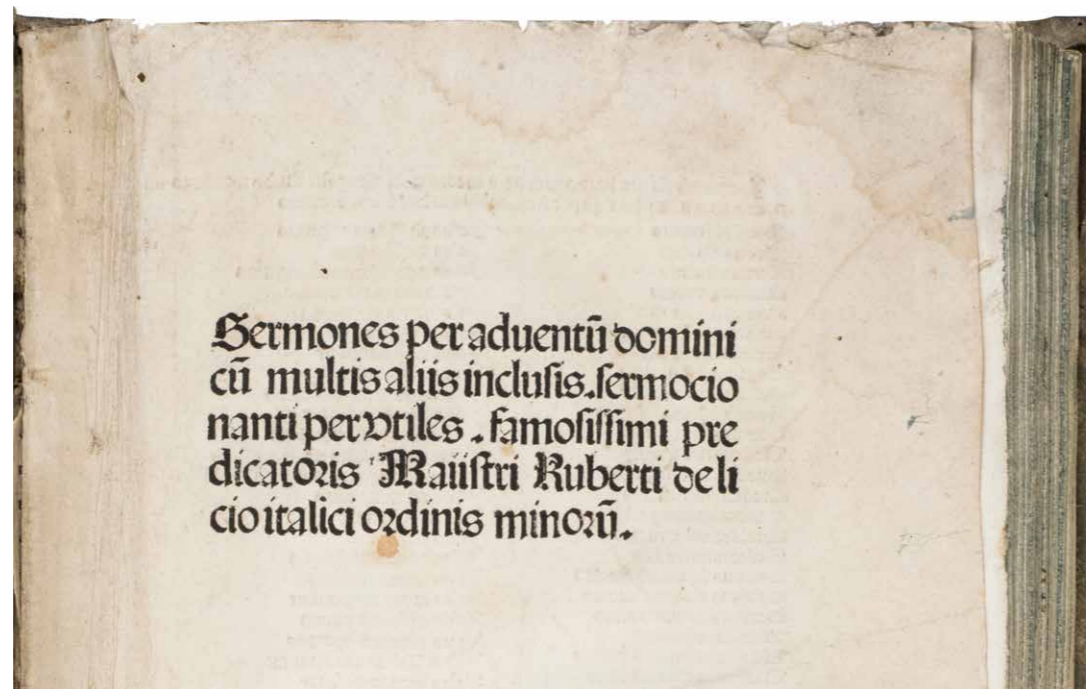 Sermones per aduentū domini
cū multis aliis inclusis. sermocio
nanti per vtiles . famosissimi pre
dicatoris Maiistri Ruberti de li
cio italici ordinis minorū.